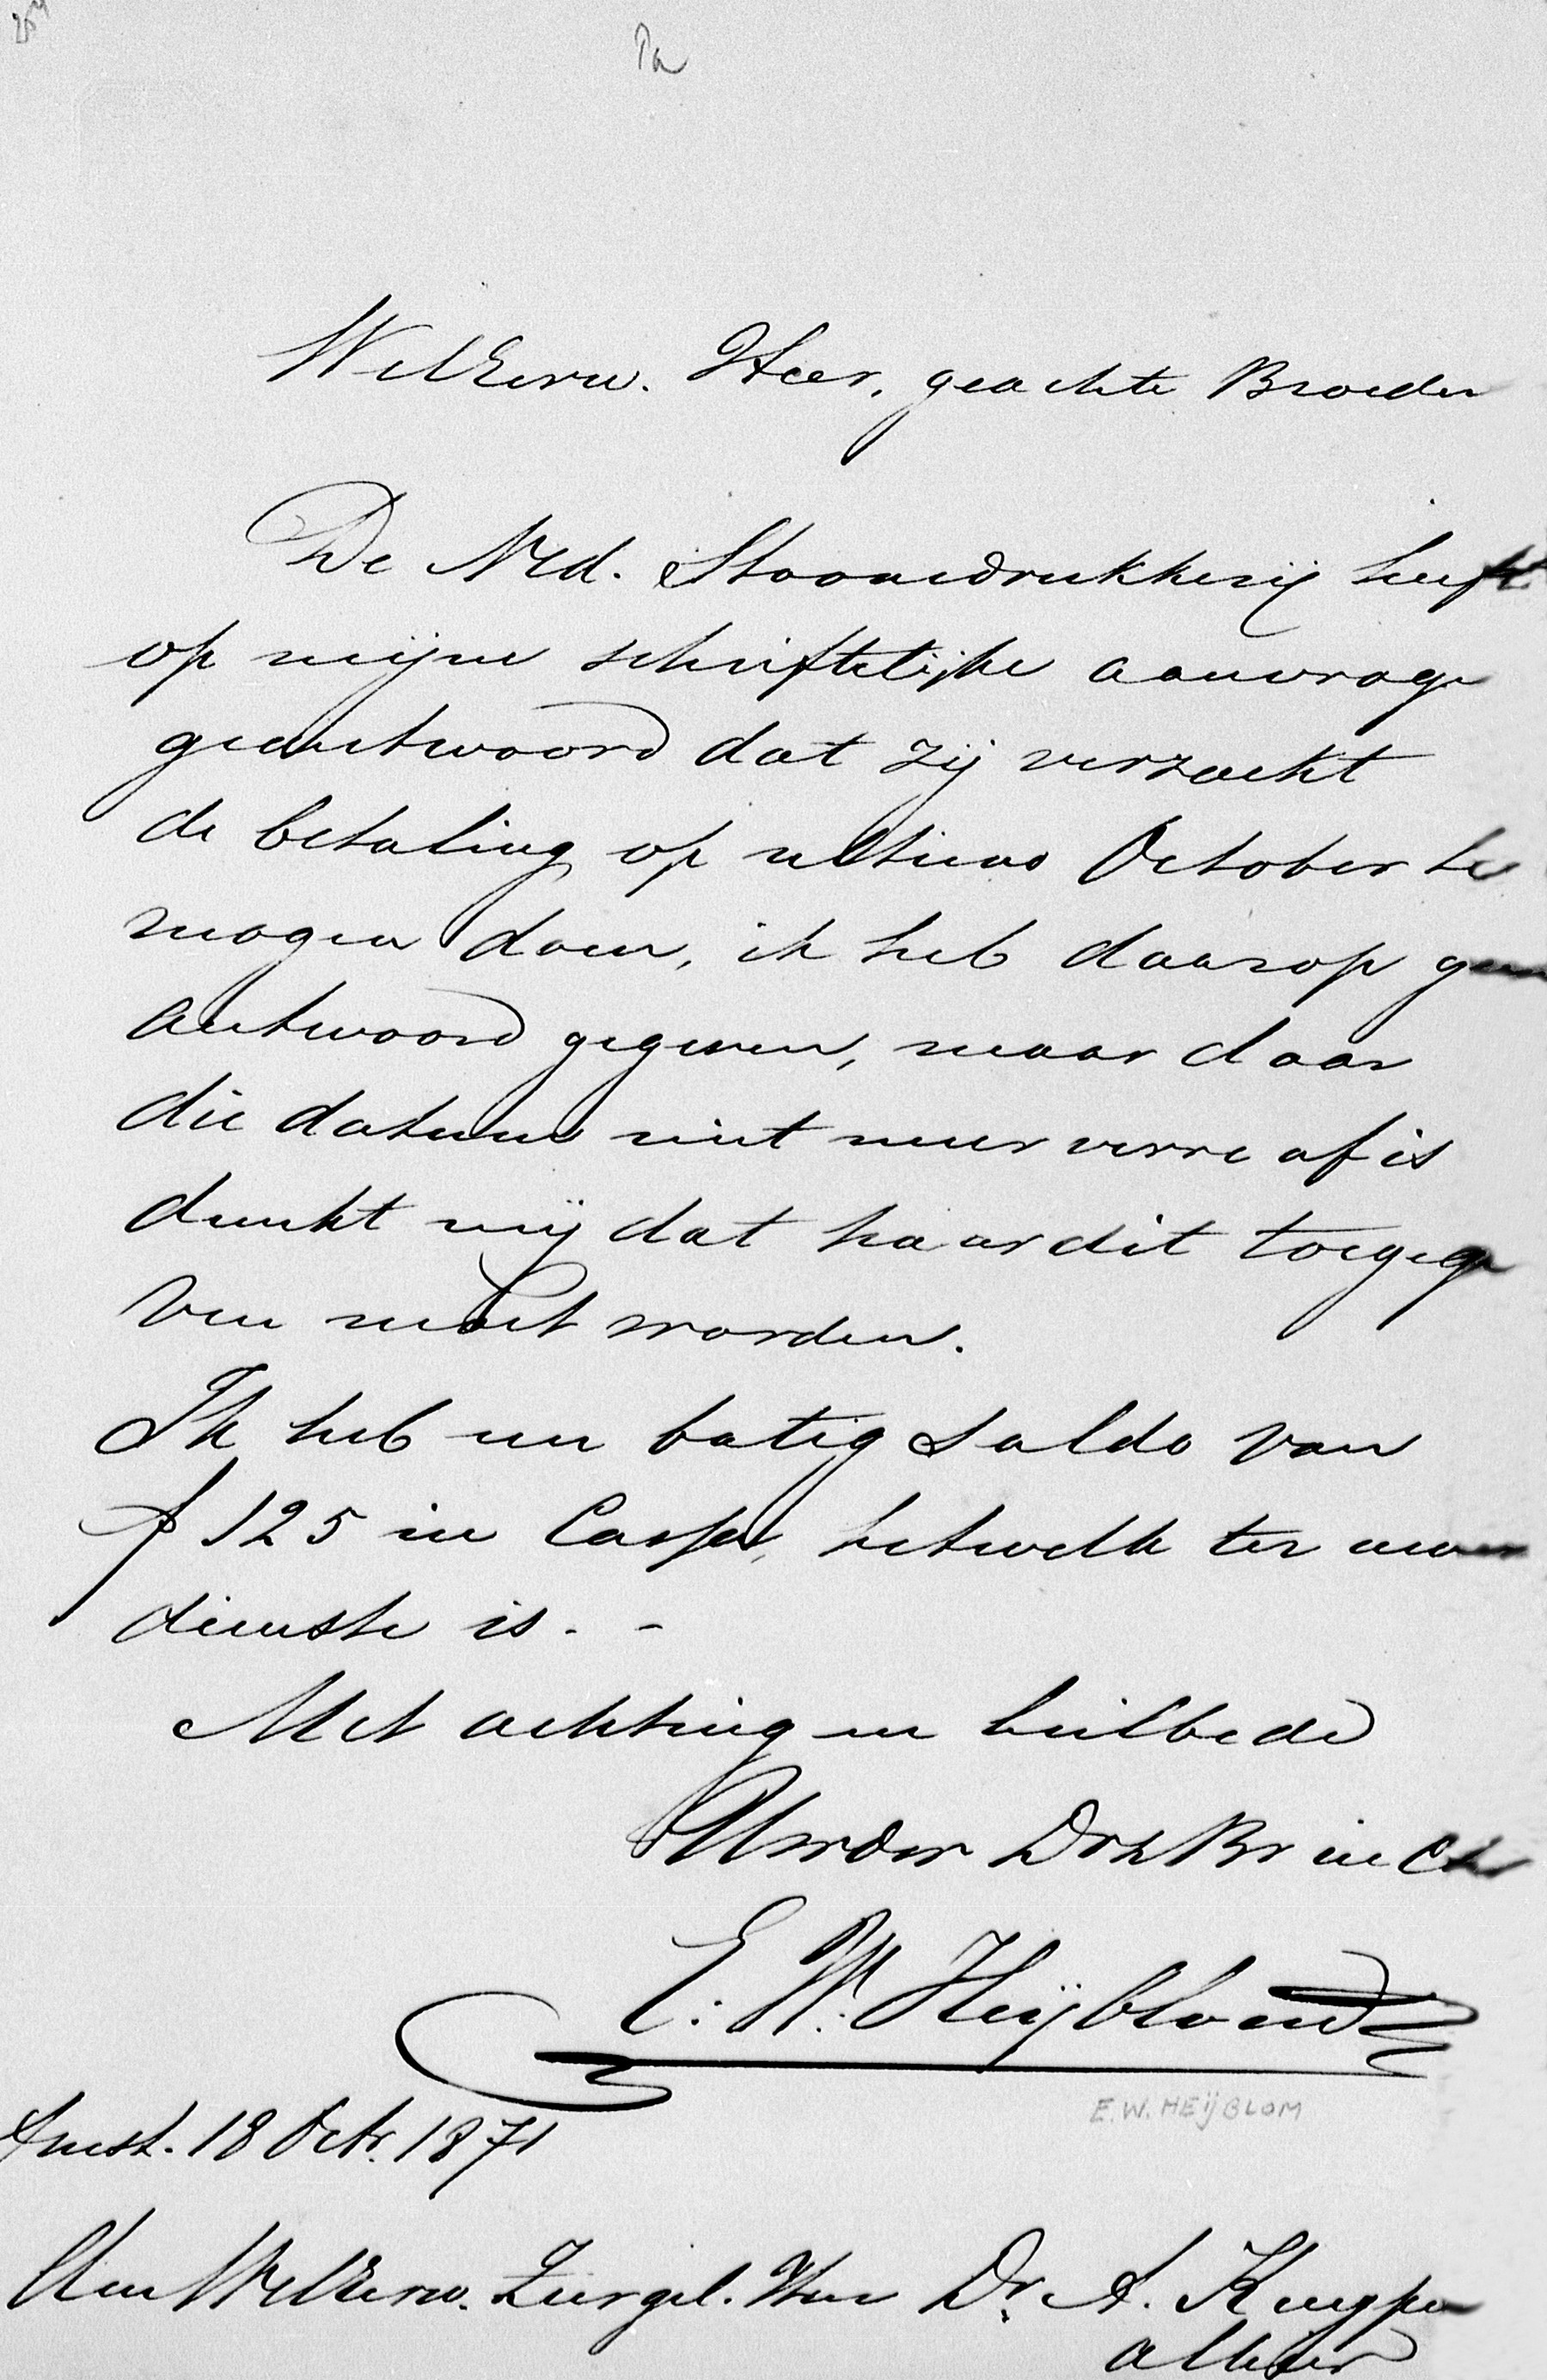 WelEerw. Heer, geachte Broeder
De Ned. Stoomdrukkerij heeft
op mijne schriftelijke aanvrage
geantwoord dat zij verzoekt
de betaling op ultimo October te
mogen doen, ik heb daarop geen
antwoord gegeven, maar daar
die datum niet meer verre af is
dunkt mij dat haar dit toegege
ven moet worden.
Ik heb een batig saldo van
f 125 in Cassa, hetwelk ter uwer
dienste is. -
Met achting en heilbede
UwEerw Br in Chr
E. W. Heijblom
E.W. HEIJBLOM
Amst. 18 Octr. 1871
Den WelEerw. Zeergel. Heer Dr. A. Kuyper
alhier